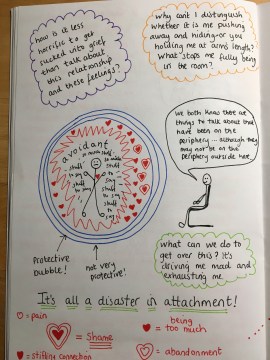 how is it less
horrific to get
sucked into grief
than talk about
this relationship
and these feelings?
Why can't I distinguish
whether it is me pushing
away and hiding - or you
holding me at arms length?
What stops me fully being
in the room?
We both know there are
things to talk about that
have been on the
periphery - although they
may not be on the
periphery outside here.
avoidant
stuff
to say
Protective
bubble!
not very
protective!
what can we do to
get over this? It's
driving me mad and
exhausting me.
It's all a disaster in attachment!
= pain
= Shame
= being
too much
= stifling connection
= abandonment